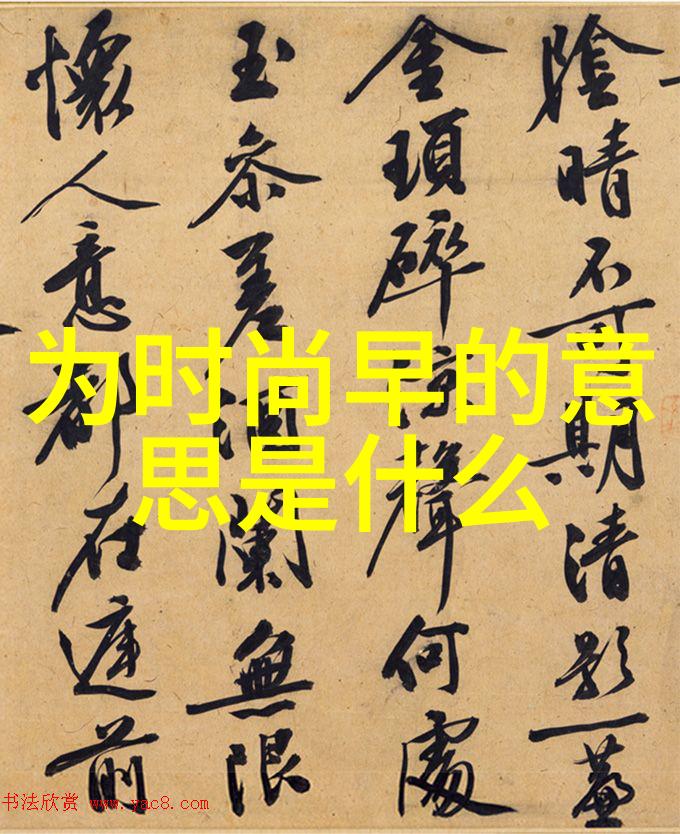 陰晴不可期清影一簾
金瑣碎涼聲何處
玉參差酒闌無限
懷人意都在庭前
为时尚早的意
思是什么
书法欣赏 www.yac8.com